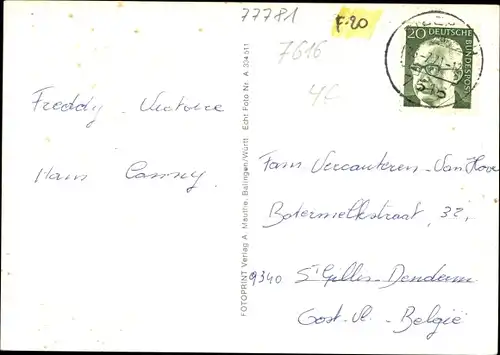 77781
F-20
7616
4€
20
DEUTSCHE BUNDESPOST
Freddy - Victoire
Hans Conny.
FOTOPRINT Verlag A. Mauthe, Balingen/Württ Echt Foto Nr. A 334 511
Fam Vercauteren - Van Hove
Botermelkstraat, 32,
9340 St Gilles - Denderm
Oost.-Vl. - België